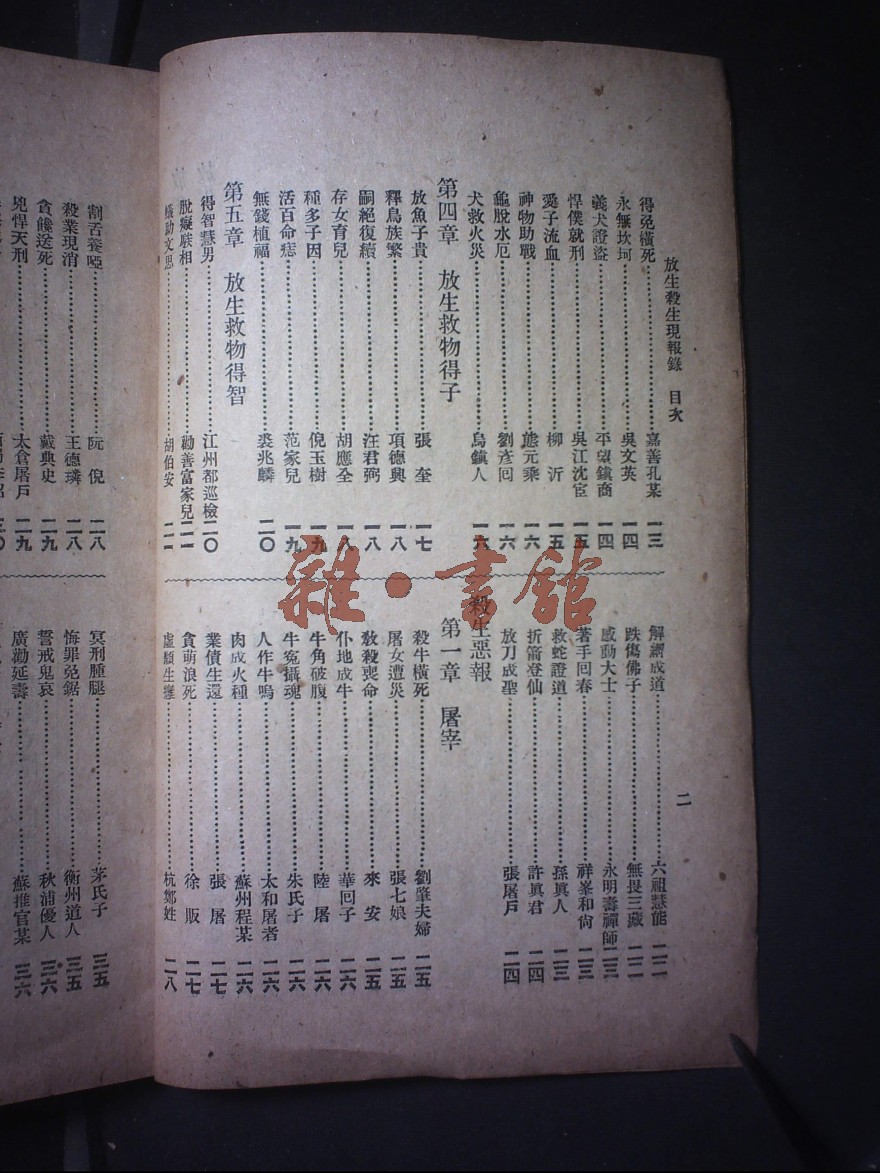 放生殺生現報錄　目次
二
得免橫死……嘉善孔某　一三
永無坎坷……吳文英　一四
義犬證盜……平望鎮商　一四
悍僕就刑……吳江沈宦　一五
愛子流血……柳沂　一五
神物助戰……熊元乘　一六
龜脫水厄……劉彥回　一六
犬救火災……烏鎮人　一六
第四章　放生救物得子
放魚子貴……張奎　一七
釋鳥族繁……項德興　一八
嗣絕復續……汪君弼　一八
存女育兒……胡應全　一八
種多子因……倪玉樹　一九
活百命痣……范家兒　一九
無錢植福……裘兆麟　二〇
第五章　放生救物得智
得智慧男……江州都巡檢　二〇
脫癡駃相……勸善富家兒　二一
蟻助文思……胡伯安　二一
解網成道……六祖慧能　二二
跌傷佛子……無畏三藏　二二
感動大士……永明壽禪師　二三
著手回春……祥峯和尚　二三
救蛇證道……孫真人　二三
折箭登仙……許真君　二四
放刀成聖……張屠戶　二四
殺生惡報
第一章　屠宰
殺牛橫死……劉肇夫婦　二五
屠女遭災……張七娘　二五
教殺喪命……來安　二五
仆地成牛……華回子　二六
牛角破腹……陸屠　二六
牛冤攝魂……朱氏子　二六
人作牛鳴……太和屠者　二六
肉成火種……蘇州程某　二六
業債生還……張屠　二七
貪萌浪死……徐販　二七
虛願生瘇……杭鄭姓　二八
割舌養啞……阮倪　二八
殺業現消……王德璘　二八
貪饞送死……戴典史　二九
兇悍天刑……太倉屠戶　二九
冥刑腫腿……茅氏子　三五
悔罪免鋸……衡州道人　三五
誓戒鬼哀……秋浦優人　三六
廣勸延壽……蘇推官某　三六
雜·書館